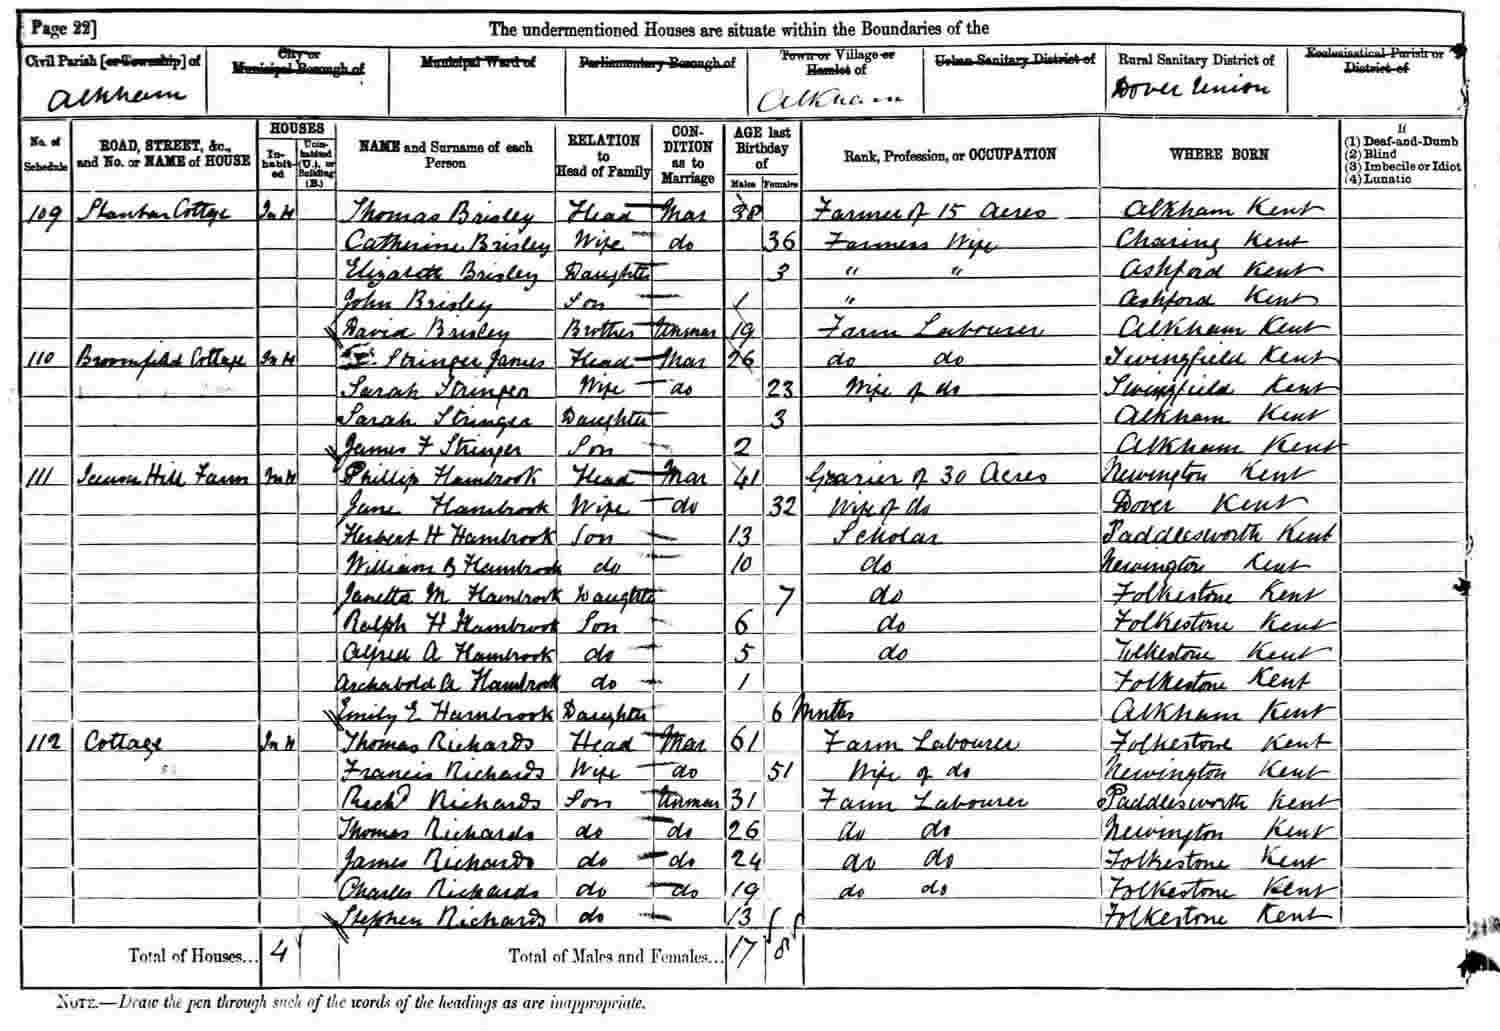 Page 22] The undermentioned Houses are situate within the Boundaries of the
Civil Parish [or Township] of City or Municipal Borough of Municipal Ward of Parliamentary Borough of Town or Village or Hamlet of Urban Sanitary District of Rural Sanitary District of Ecclesiastical Parish or District of
Alkham Alkham Dover Union
No. of Schedule ROAD, STREET, &c., and No. or NAME of HOUSE HOUSES In-habit-ed Unin-habited (U.), or Building (B.) NAME and Surname of each Person RELATION to Head of Family CON-DITION as to Marriage AGE last Birthday of Males Females Rank, Profession, or OCCUPATION WHERE BORN If (1) Deaf-and-Dumb (2) Blind (3) Imbecile or Idiot (4) Lunatic
109 Cottage Thomas Brisley Head Mar 38 Farmer of 15 Acres Alkham Kent
Catherine Brisley Wife do 36 Farmers Wife Charing Kent
Elizabeth Brisley Daughter 3 " " Ashford Kent
John Brisley Son 1 " Ashford Kent
David Brisley Brother Unmar 19 Farm Labourer Alkham Kent
110 Broomfield Cottage Stringer James Head Mar 26 do do Swingfield Kent
Sarah Stringer Wife do 23 Wife of do Swingfield Kent
Sarah Stringer Daughter 3 Alkham Kent
James F Stringer Son 2 Alkham Kent
111 Hill Farm Phillip Hambrook Head Mar 41 Grazier of 30 Acres Newington Kent
Jane Hambrook Wife do 32 Wife of do Dover Kent
Herbert H Hambrook Son 13 Scholar Paddlesworth Kent
William B Hambrook do 10 do Newington Kent
Janetta M Hambrook Daughter 7 do Folkestone Kent
Ralph H Hambrook Son 6 do Folkestone Kent
Alfred A Hambrook do 5 do Folkestone Kent
Archabold A Hambrook do 1 Folkestone Kent
Emily E Hambrook Daughter 6 Months Alkham Kent
112 Cottage Thomas Richards Head Mar 61 Farm Labourer Folkestone Kent
Francis Richards Wife do 51 Wife of do Newington Kent
Richd Richards Son Unmar 31 Farm Labourer Paddlesworth Kent
Thomas Richards do do 26 do do Newington Kent
James Richards do do 24 do do Folkestone Kent
Charles Richards do do 19 do do Folkestone Kent
Stephen Richards do 13 Folkestone Kent
Total of Houses... 4 Total of Males and Females... 17 8
NOTE.—Draw the pen through such of the words of the headings as are inappropriate.